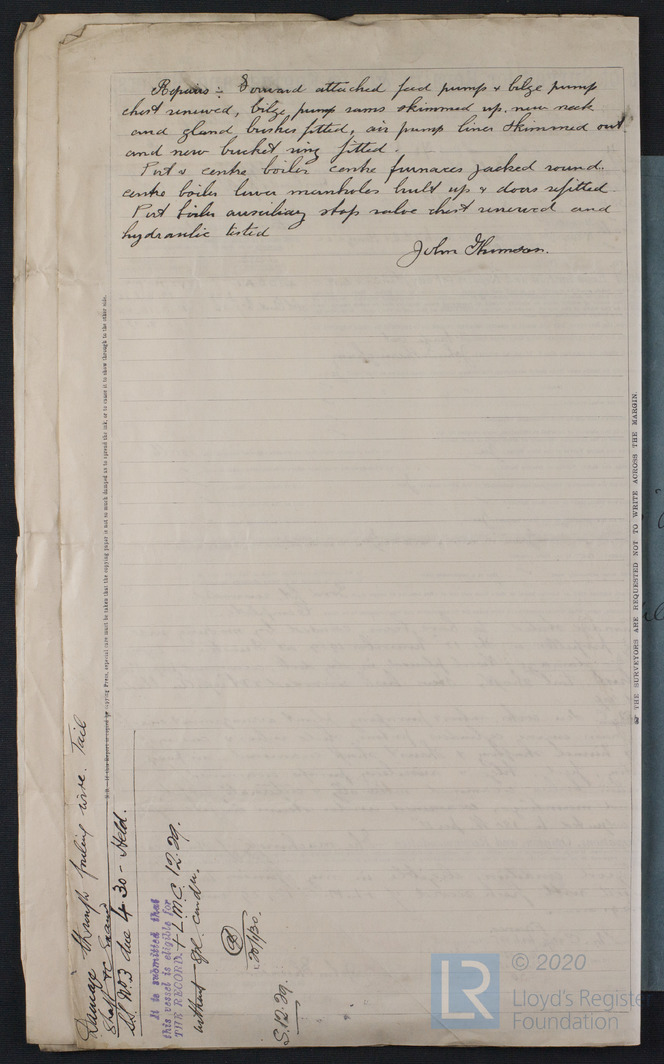 Repairs :- Forward attached feed pumps & bilge pump
chest renewed, bilge pump rams skimmed up, new neck
and gland bushes fitted, air pump liner skimmed out
and new bucket ring fitted.
Port & centre boiler centre furnaces jacked round.
centre boiler lower manholes built up & doors refitted
Port boiler auxiliary stop valve chest renewed and
hydraulic tested
John Thomson.
THE SURVEYORS ARE REQUESTED NOT TO WRITE ACROSS THE MARGIN.
N.B.—If this Report is copied by copying Press, especial care must be taken that the copying paper is not so much damped as to spread the ink, or to cause it to show through to the other side.
Damage through fouling wire. Tail
Shaft &c Exam
SS. No 3 due 4.30 - Held.
It is submitted that
this vessel is eligible for
THE RECORD. + L.M.C. 12.29.
without spl. cond.
20/1/30.
S. 12.29.
© 2020
LR
Lloyd's Register
Foundation